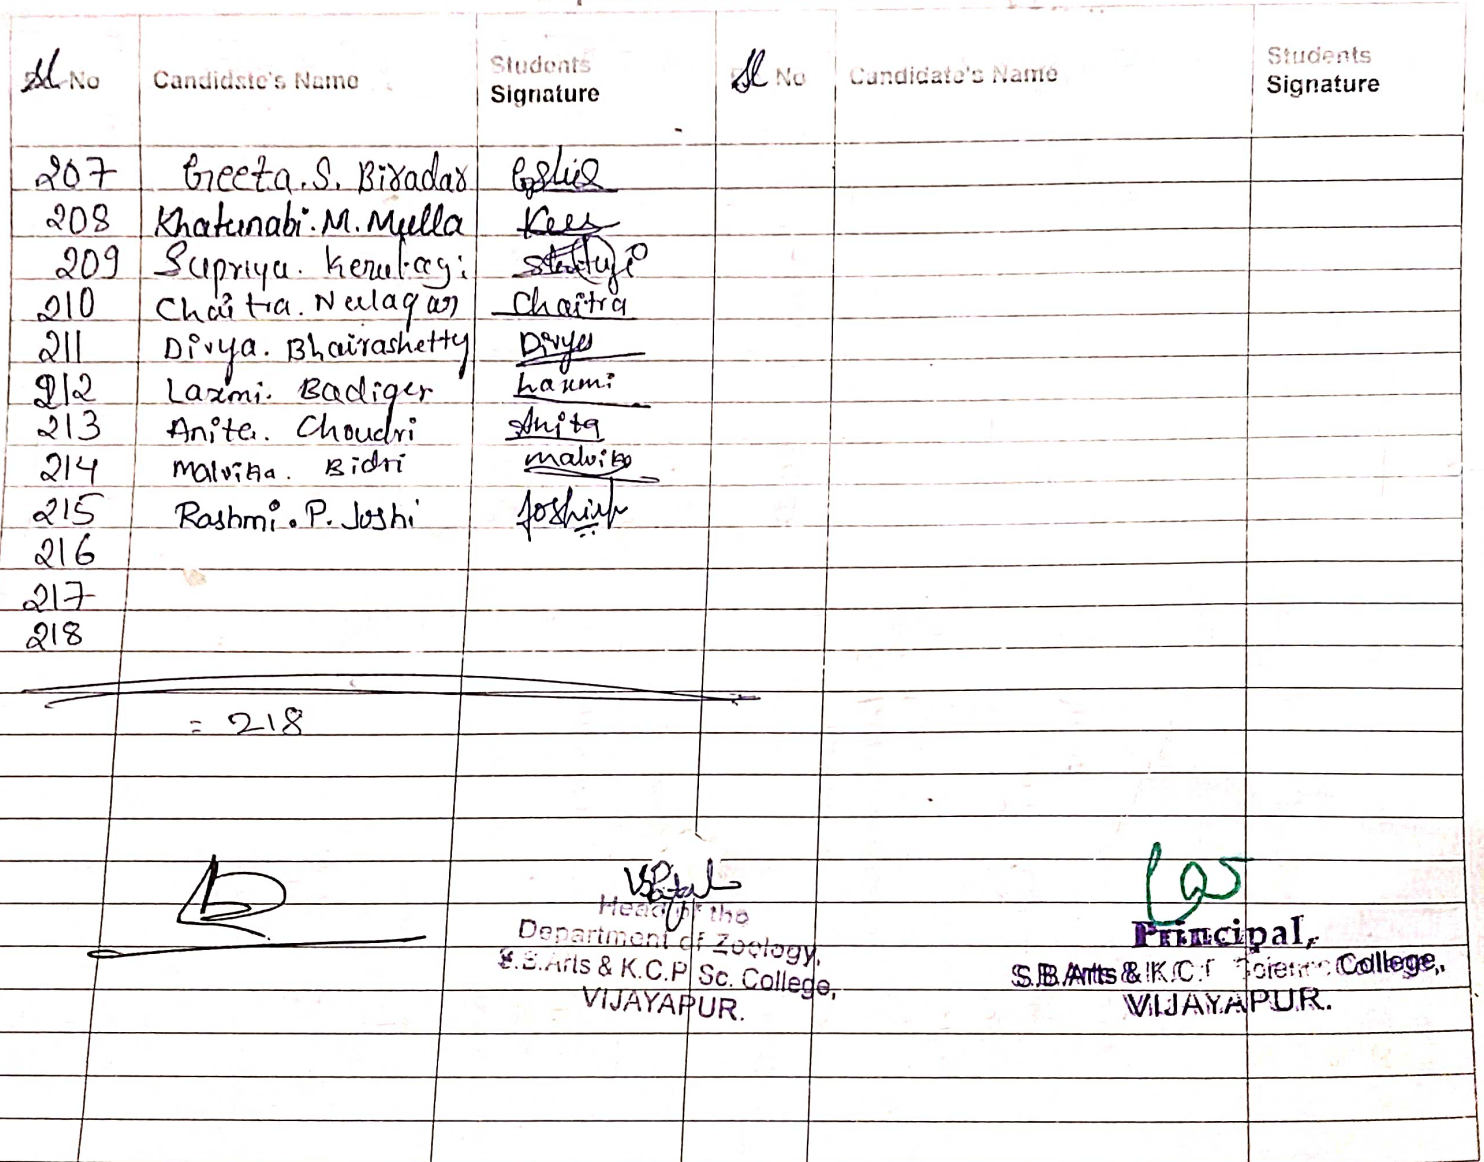 Sl No Candidate's Name Students Signature Sl No Candidate's Name Students Signature
207 Geeta.S. Biradar
208 Khatunabi.M.Mulla
209 Supriya. Kerutagi
210 Chaitra. Neelagar Chaitra
211 Divya. Bhairashetty Divya
212 Laxmi. Badiger Laxmi
213 Anita. Choudri Anita
214 Malvika. Bidri Malvika
215 Rashmi.P. Joshi Joshi
216
217
218
= 218
Head of the
Department of Zoology,
S.B.Arts & K.C.P Sc. College,
VIJAYAPUR.
Principal,
S.B.Arts & K.C.P Science College,
VIJAYAPUR.